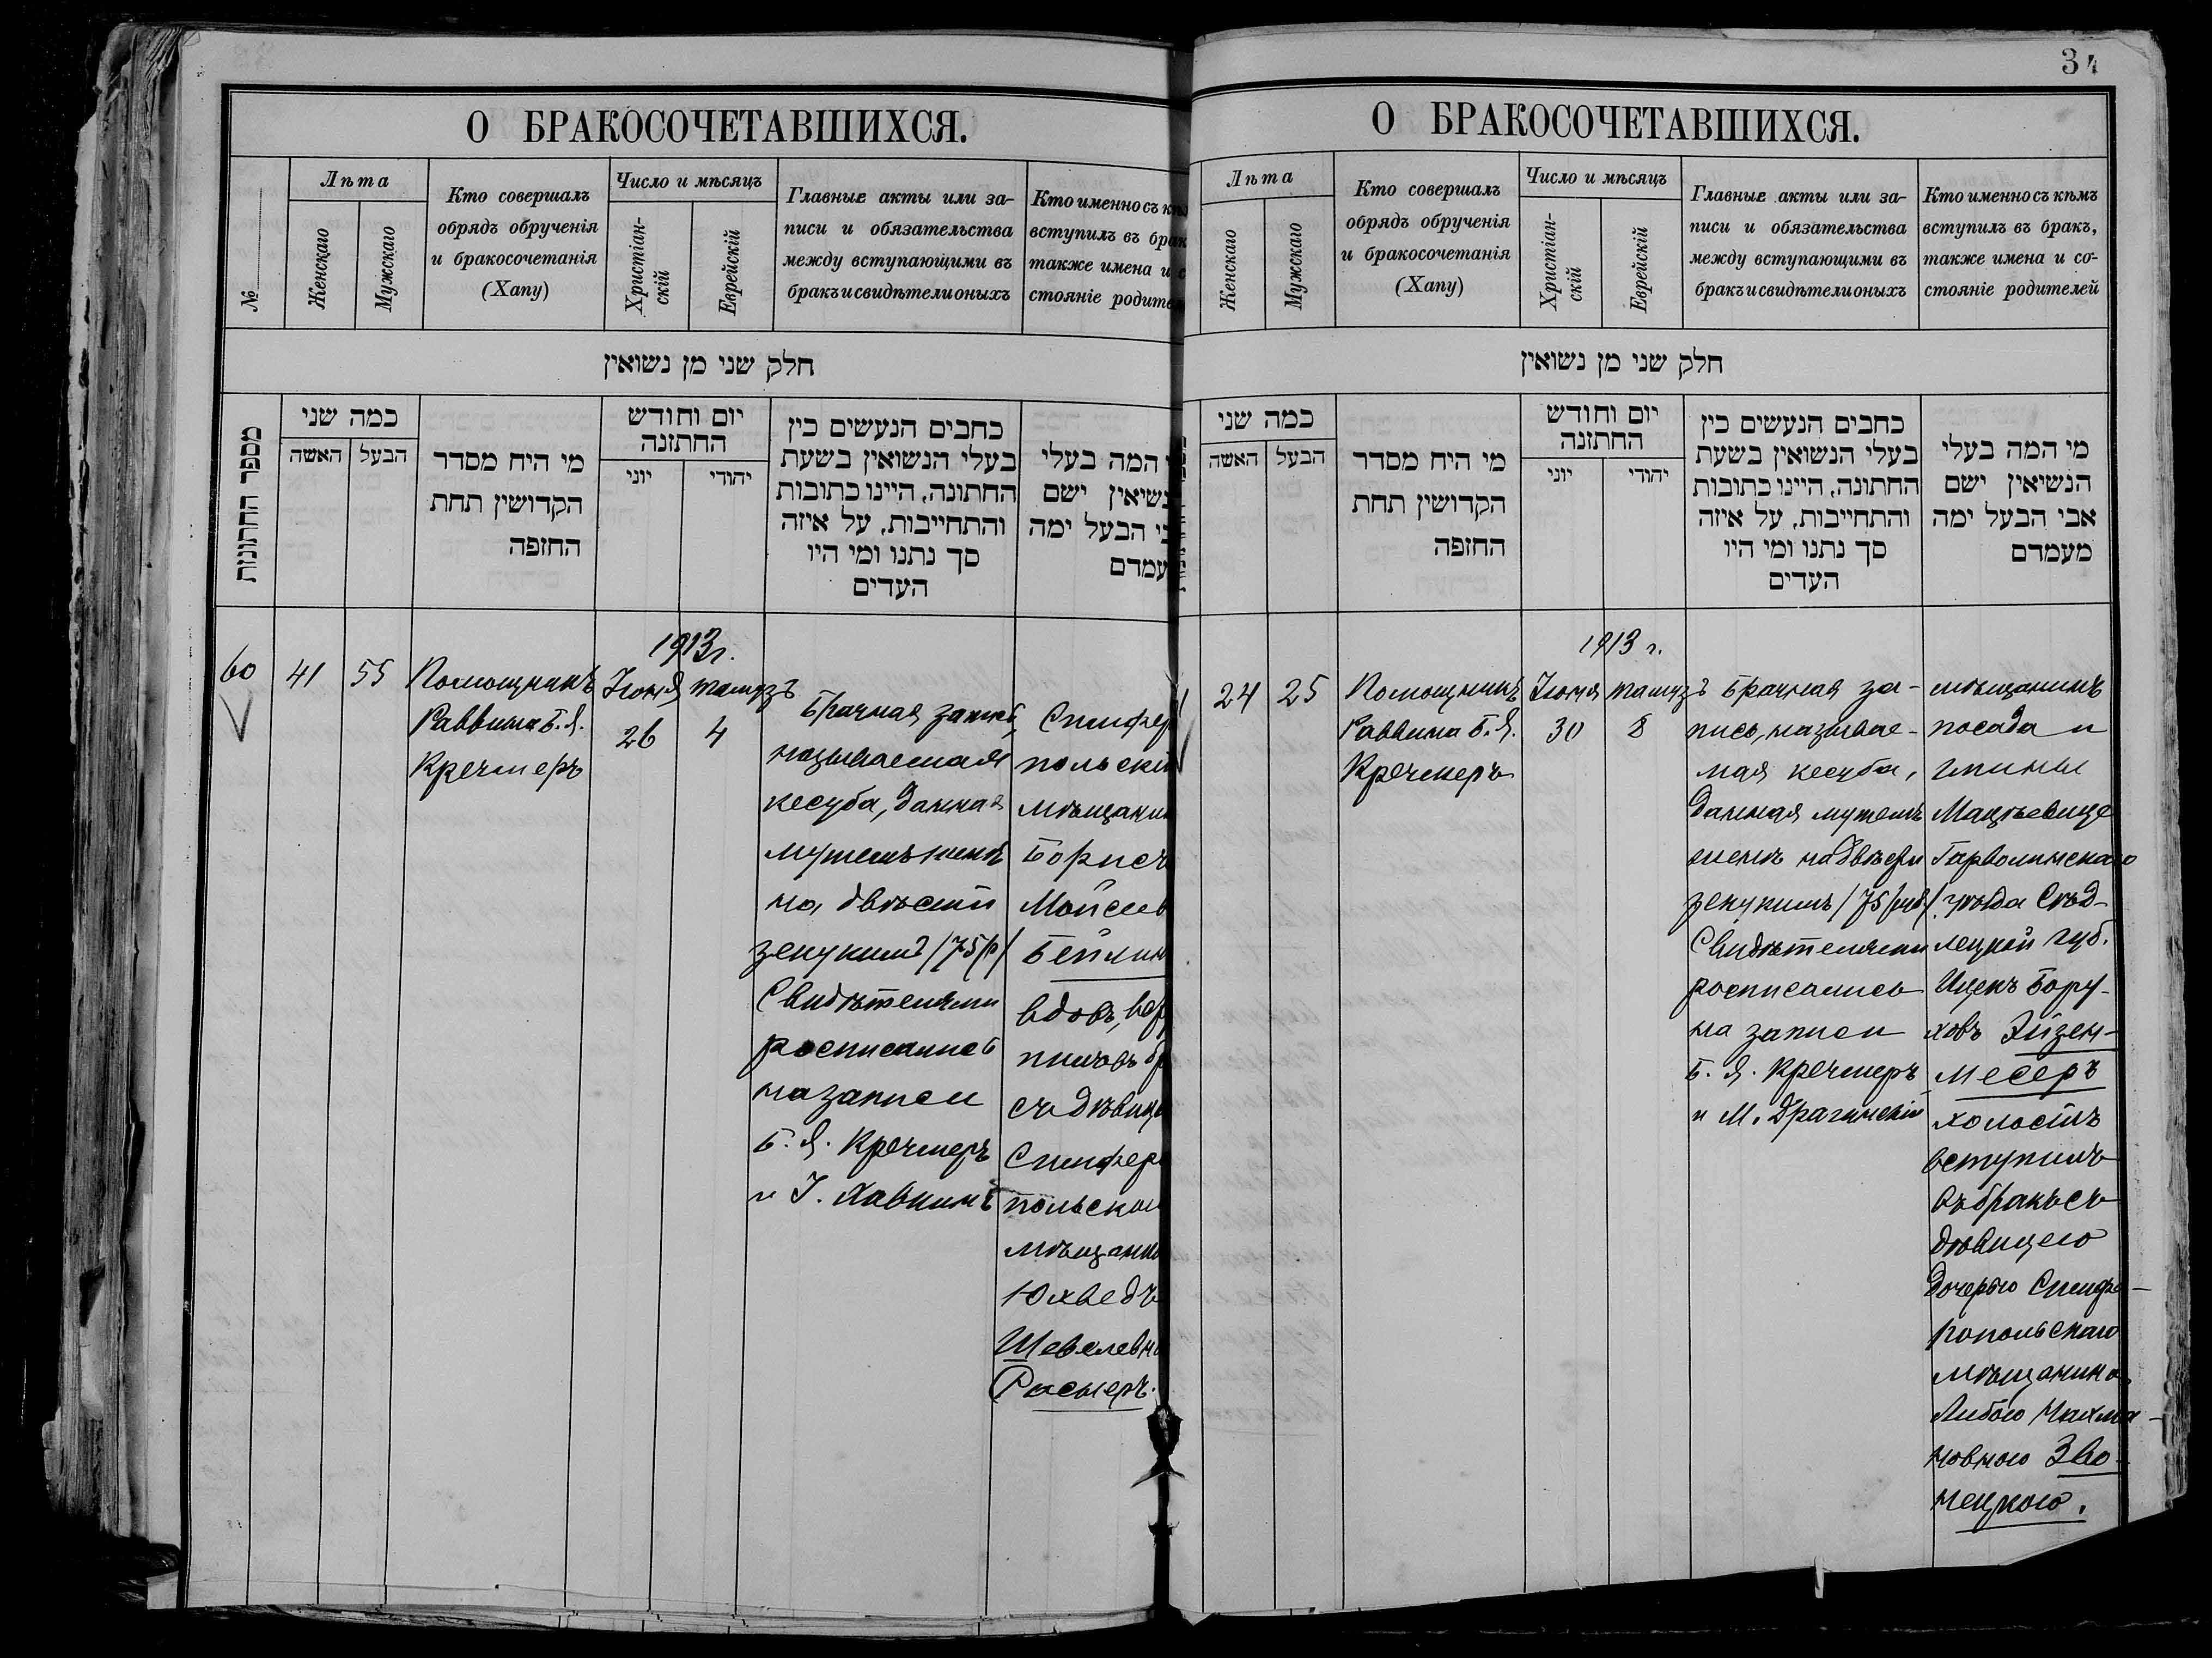 34
О БРАКОСОЧЕТАВШИХСЯ.
№
Лѣта
Женскаго
Мужскаго
Кто совершалъ
обрядъ обрученія
и бракосочетанія
(Хапу)
Число и мѣсяцъ
Христіан-
скій
Еврейскій
Главные акты или за-
писи и обязательства
между вступающими въ
бракъ и свидѣтели оныхъ
Кто именно съ
вступилъ въ брак
также имена и с
стояніе родите
חלק שני מן נשואין
מספר החתונות
כמה שני
האשה
הבעל
מי היח מסדר
הקדושין תחת
החופה
יום וחודש
החתונה
יוני
יהודי
כחבים הנעשים כין
בעלי הנשואין בשעת
החתונה, היינו כתובות
והתחייבות, על איזה
סך נתנו ומי היו
העדים
המה בעלי
נשיאין ישם
בי הבעל ימה
עמדם
60
41
55
Помощникъ
Раввина Б. Я.
Кречмеръ
1913 г.
Іюня
26
тамузъ
4
Брачная запись,
называемая
кесуба, данная
мужемъ женѣ
на двѣсти
зекукимъ /75 р/
Свидѣтелями
росписались
на записи
Б. Я. Кречмеръ
и І. Хавкинъ
Симферо
польскій
мѣщанин
Борисъ
Мойсеев
Бейлин
вдовъ, всту
пилъ въ бр
съ дѣвице
Симферо
польскою
мѣщанко
Юхведъ
Шевелевно
Росмеръ.
О БРАКОСОЧЕТАВШИХСЯ.
Лѣта
Женскаго
Мужскаго
Кто совершалъ
обрядъ обрученія
и бракосочетанія
(Хапу)
Число и мѣсяцъ
Христіан-
скій
Еврейскій
Главные акты или за-
писи и обязательства
между вступающими въ
бракъ и свидѣтели оныхъ
Кто именно съ кѣмъ
вступилъ въ бракъ,
также имена и со-
стояніе родителей
חלק שני מן נשואין
כמה שני
האשה
הבעל
מי היח מסדר
הקדושין תחת
החופה
יום וחודש
החתונה
יוני
יהודי
כחבים הנעשים כין
בעלי הנשואין בשעת
החתונה, היינו כתובות
והתחייבות, על איזה
סך נתנו ומי היו
העדים
מי המה בעלי
הנשיאין ישם
אבי הבעל ימה
מעמדם
24
25
Помощникъ
Раввина Б. Я.
Кречмеръ
1913 г.
Іюня
30
тамузъ
8
Брачная за-
пись, называе-
мая кесуба,
данная мужемъ
женѣ на двѣсти
зекукимъ /75 руб/
Свидѣтелями
росписались
на записи
Б. Я. Кречмеръ
и М. Драгинскій
мѣщанинъ
посада и
гмины
Мацѣевице
Гарволинскаго
уѣзда Сѣд-
лецкой губ.
Ицекъ Бору-
ховъ Эйзен-
месеръ
холостъ
вступилъ
въ бракъ съ
дѣвицею
дочерью Симфе-
ропольскаго
мѣщанина
Либою Нахма-
новною Зво-
нецкою.